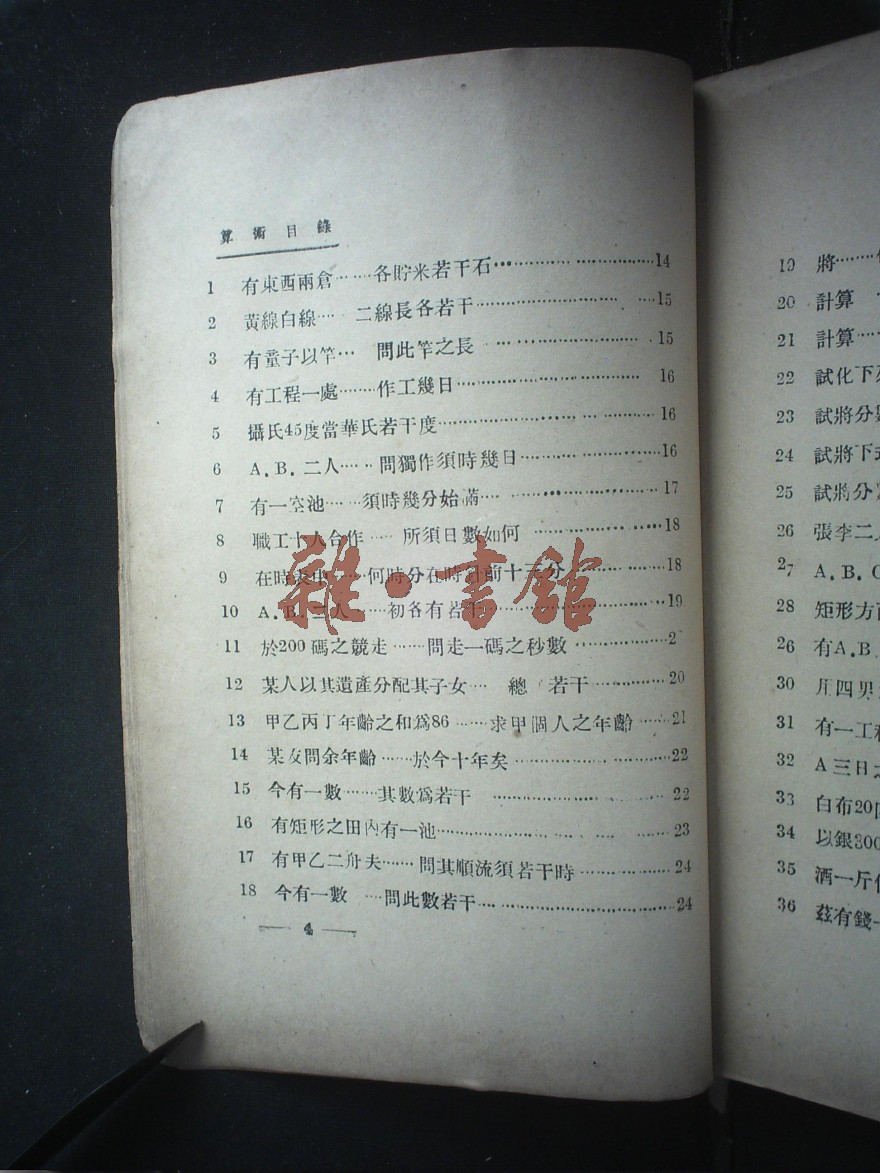 算術目錄
1 有東西兩倉……各貯米若干石……14
2 黃線白線…… 二線長各若干……15
3 有童子以竿… 問此竿之長……15
4 有工程一處……作工幾日……16
5 攝氏45度當華氏若干度……16
6 A.B.二人……問獨作須時幾日……16
7 有一空池……須時幾分始滿……17
8 職工十人合作…… 所須日數如何……18
9 在時表中……何時分在時針前十三分……18
10 A.B.二人……初各有若干……19
11 於200碼之競走……問走一碼之秒數……2
12 某人以其遺產分配其子女… 總 若干……20
13 甲乙丙丁年齡之和爲86……求甲個人之年齡……21
14 某友問余年齡……於今十年矣……22
15 今有一數……其數爲若干……22
16 有矩形之田內有一池……23
17 有甲乙二舟夫……問其順流須若干時……24
18 今有一數 …問此數若干……24
4
19 將……
20 計算
21 計算…
22 試化下列
23 試將分
24 試將下式
25 試將分
26 張李二
27 A.B.C
28 矩形方
26 有A.B.
30 用四男
31 有一工程
32 A三日之
33 白布20
34 以銀300
35 酒一斤
36 茲有錢
雜·書館